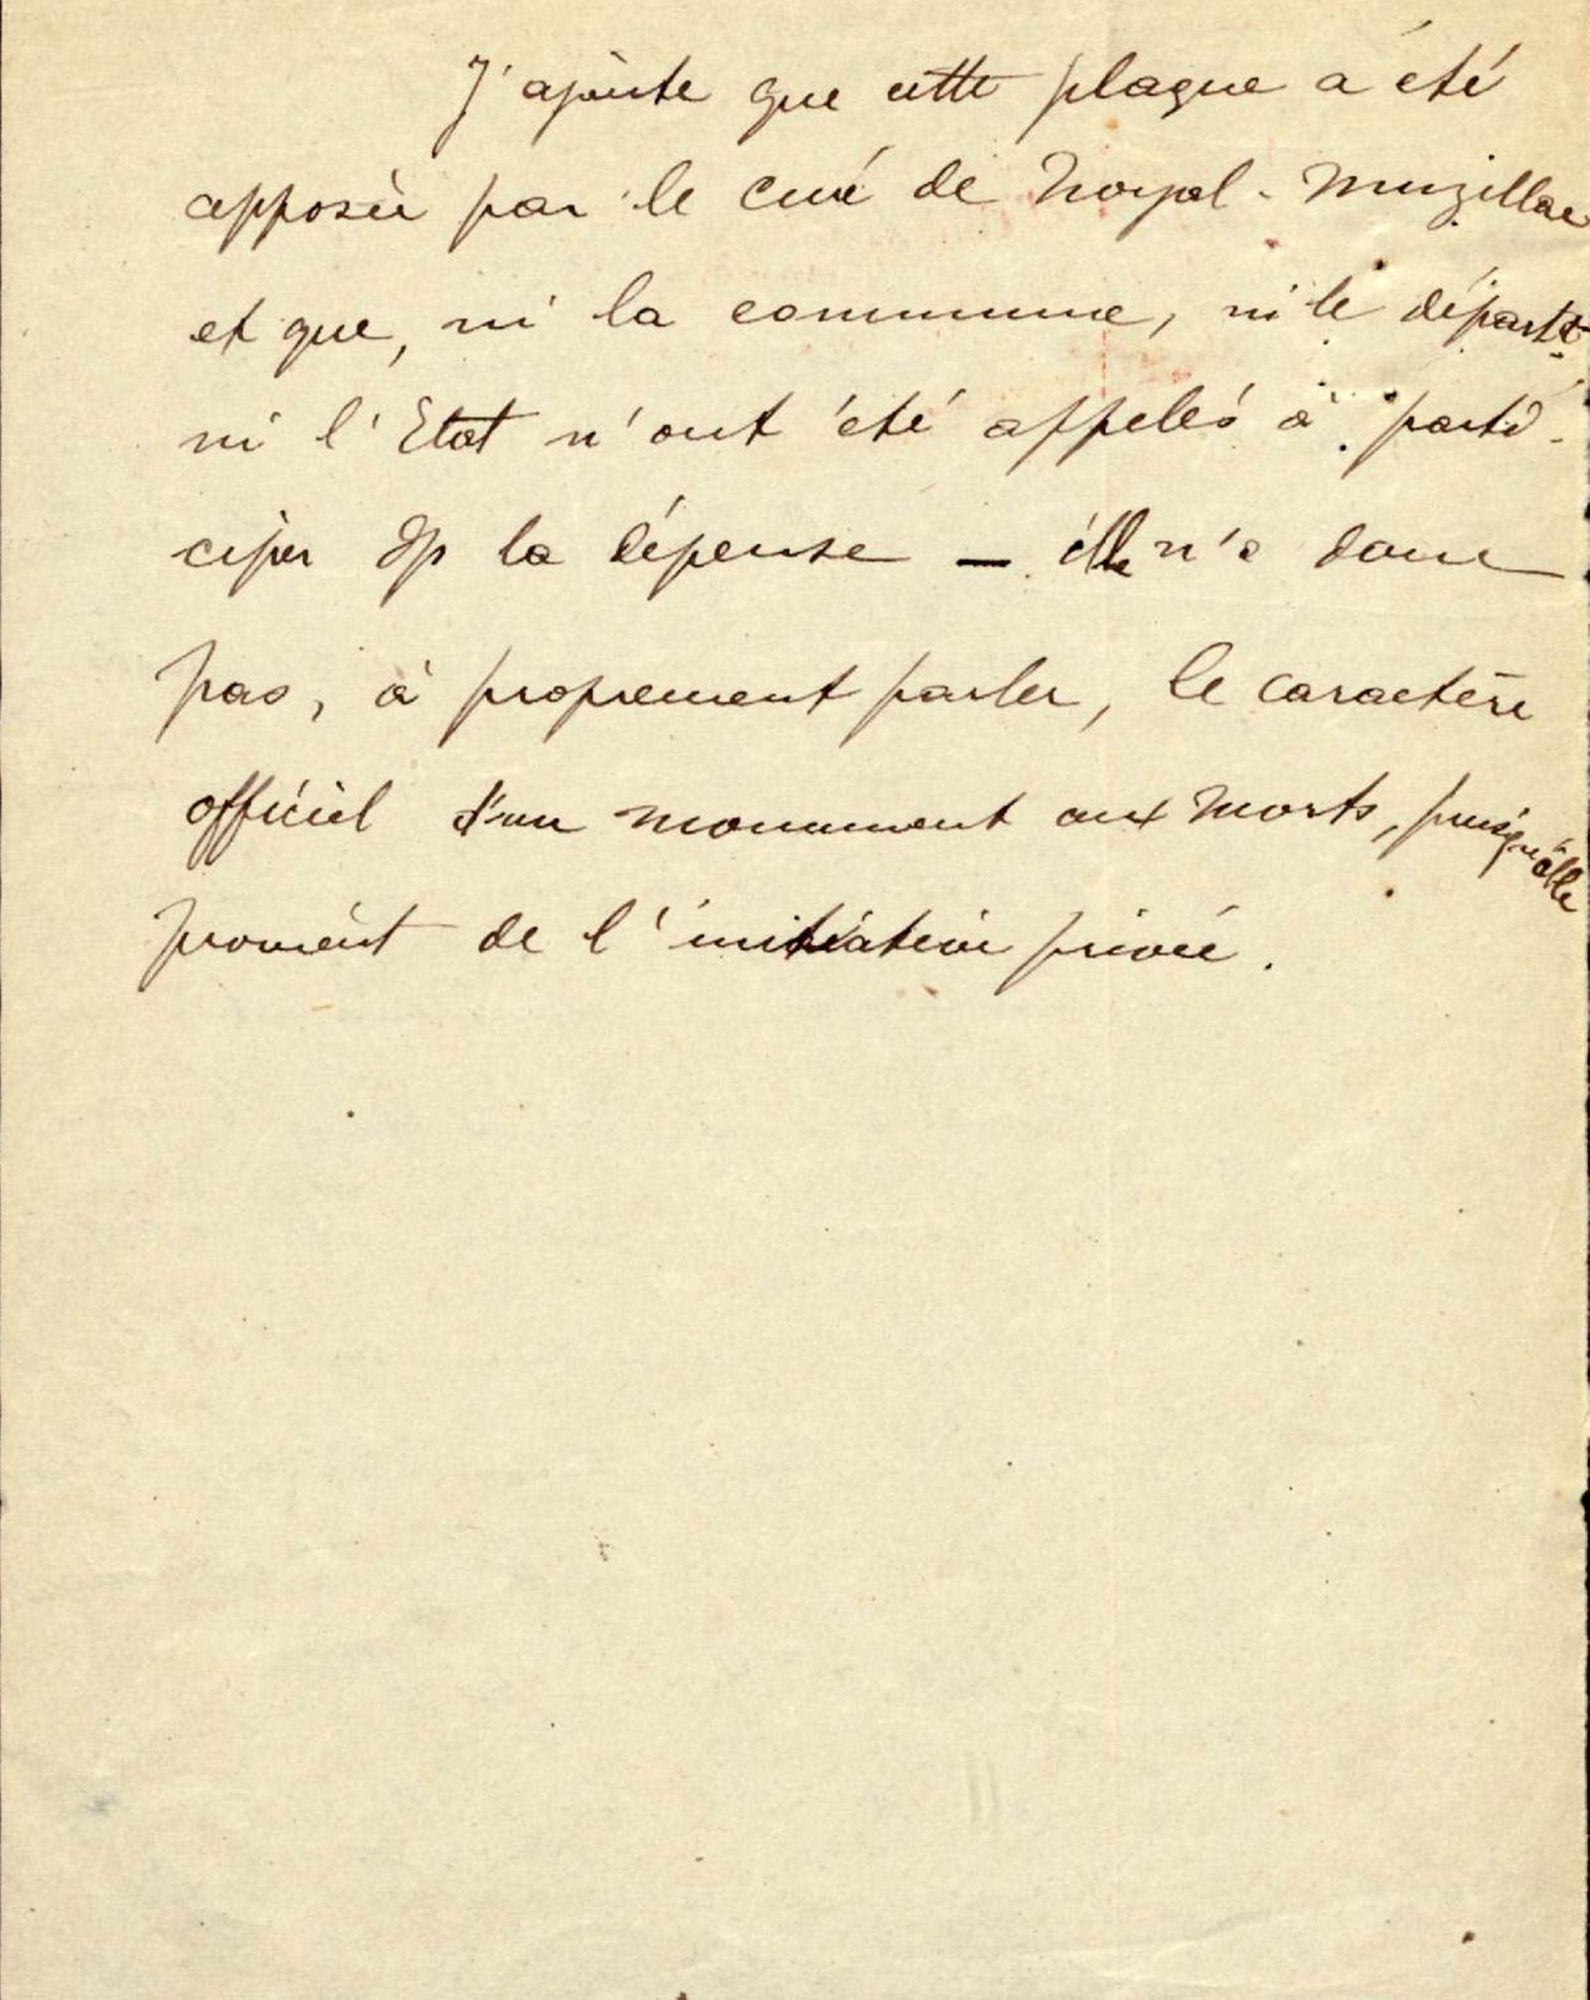 J'ajoute que cette plaque a été
apposée par le curé de Noyal-Muzillac
et que, ni la commune, ni le départt
ni l'Etat n'ont été appelés à parti-
ciper à la dépense — elle n'a donc
pas, à proprement parler, le caractère
officiel d'un monument aux morts, puisqu'elle
provient de l'initiative privée.